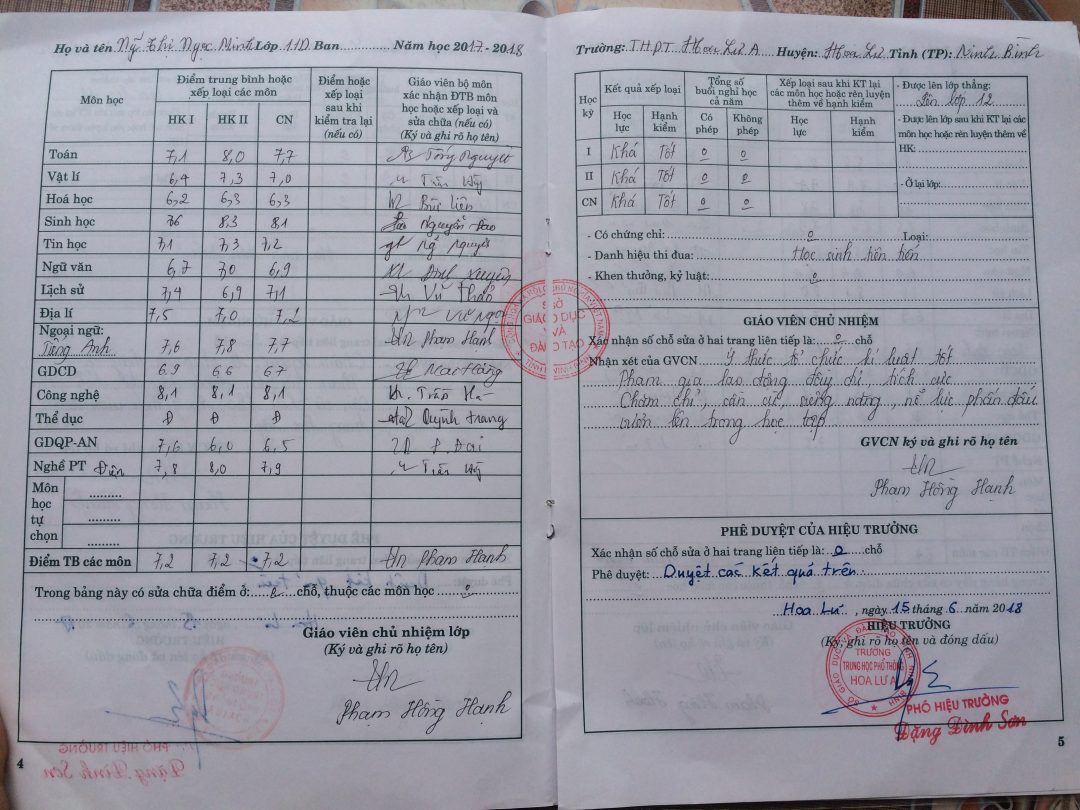 Họ và tên Thị Ngọc Lớp 11D Ban Năm học 2017 - 2018
Môn học
Điểm trung bình hoặc xếp loại các môn
HK I HK II CN
Điểm hoặc xếp loại sau khi kiểm tra lại (nếu có)
Giáo viên bộ môn xác nhận ĐTB môn học hoặc xếp loại và sửa chữa (nếu có)
(Ký và ghi rõ họ tên)
Toán 7,1 8,0 7,7 Tống Nguyệt
Vật lí 6,4 7,3 7,0 Trần
Hoá học 6,2 6,3 6,3 Liên
Sinh học 76 8,3 8,1 Nguyễn
Tin học 7,1 7,3 7,2 Nguyệt
Ngữ văn 6,7 7,0 6,9
Lịch sử 7,4 6,9 7,1 Vũ Thảo
Địa lí 7,5 7,0 7,2
Ngoại ngữ:
Tiếng Anh 7,6 7,8 7,7 Phạm Hạnh
GDCD 69 66 67
Công nghệ 8,1 8,1 8,1 Trần
Thể dục Đ Đ Đ Quỳnh Trang
GDQP-AN 7,6 6,0 6,5
Nghề PT Điện 7,8 8,0 7,9 Trần
Môn học tự chọn
Điểm TB các môn 7,2 7,2 7,2 Phạm Hạnh
Trong bảng này có sửa chữa điểm ở: chỗ, thuộc các môn học
Giáo viên chủ nhiệm lớp
(Ký và ghi rõ họ tên)
Phạm Hồng Hạnh
4
SỞ
GIÁO DỤC
VÀ
ĐÀO TẠO
Trường: THPT Hoa Lư A Huyện: Hoa Lư Tỉnh (TP): Ninh Bình
Học kỳ
Kết quả xếp loại
Học lực Hạnh kiểm
Tổng số buổi nghỉ học cả năm
Có phép Không phép
Xếp loại sau khi KT lại các môn học hoặc rèn luyện thêm về hạnh kiểm
Học lực Hạnh kiểm
I Khá Tốt 0 0
II Khá Tốt 0 0
CN Khá Tốt 0 0
- Được lên lớp thẳng:
Lên lớp 12
- Được lên lớp sau khi KT lại các môn học hoặc rèn luyện thêm về HK:
- Ở lại lớp:
- Có chứng chỉ: 0 Loại:
- Danh hiệu thi đua: Học sinh tiên tiến
- Khen thưởng, kỷ luật: 0
GIÁO VIÊN CHỦ NHIỆM
Xác nhận số chỗ sửa ở hai trang liên tiếp là: 0 chỗ
Nhận xét của GVCN Ý thức tổ chức kỉ luật tốt
Tham gia lao động đầy đủ, tích cực
Chăm chỉ, cần cù, siêng năng, nỗ lực phấn đấu
vươn lên trong học tập
GVCN ký và ghi rõ họ tên
Phạm Hồng Hạnh
PHÊ DUYỆT CỦA HIỆU TRƯỞNG
Xác nhận số chỗ sửa ở hai trang liên tiếp là: 0 chỗ
Phê duyệt: Duyệt các kết quả trên
Hoa Lư, ngày 15 tháng 6 năm 2018
HIỆU TRƯỞNG
(Ký, ghi rõ họ tên và đóng dấu)
TRƯỜNG
TRUNG HỌC PHỔ THÔNG
HOA LƯ A
PHÓ HIỆU TRƯỞNG
Đặng Đình Sơn
5